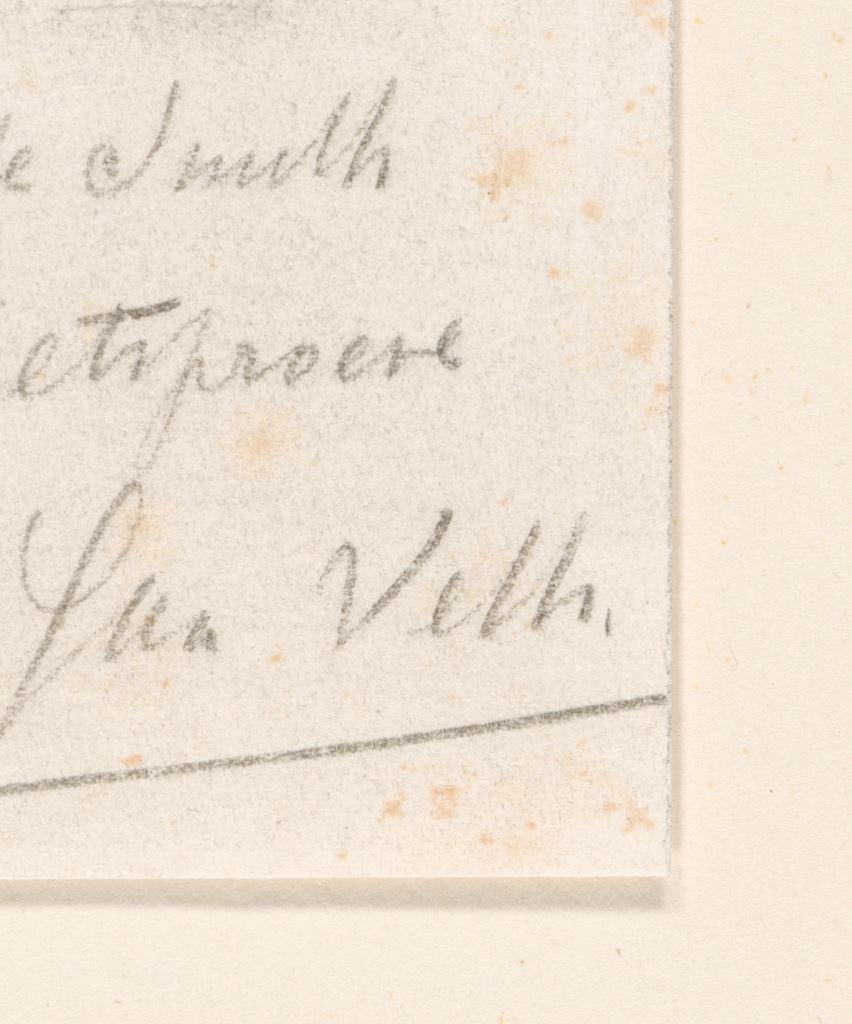 de Smidt
etsproeve
Jan Veth.